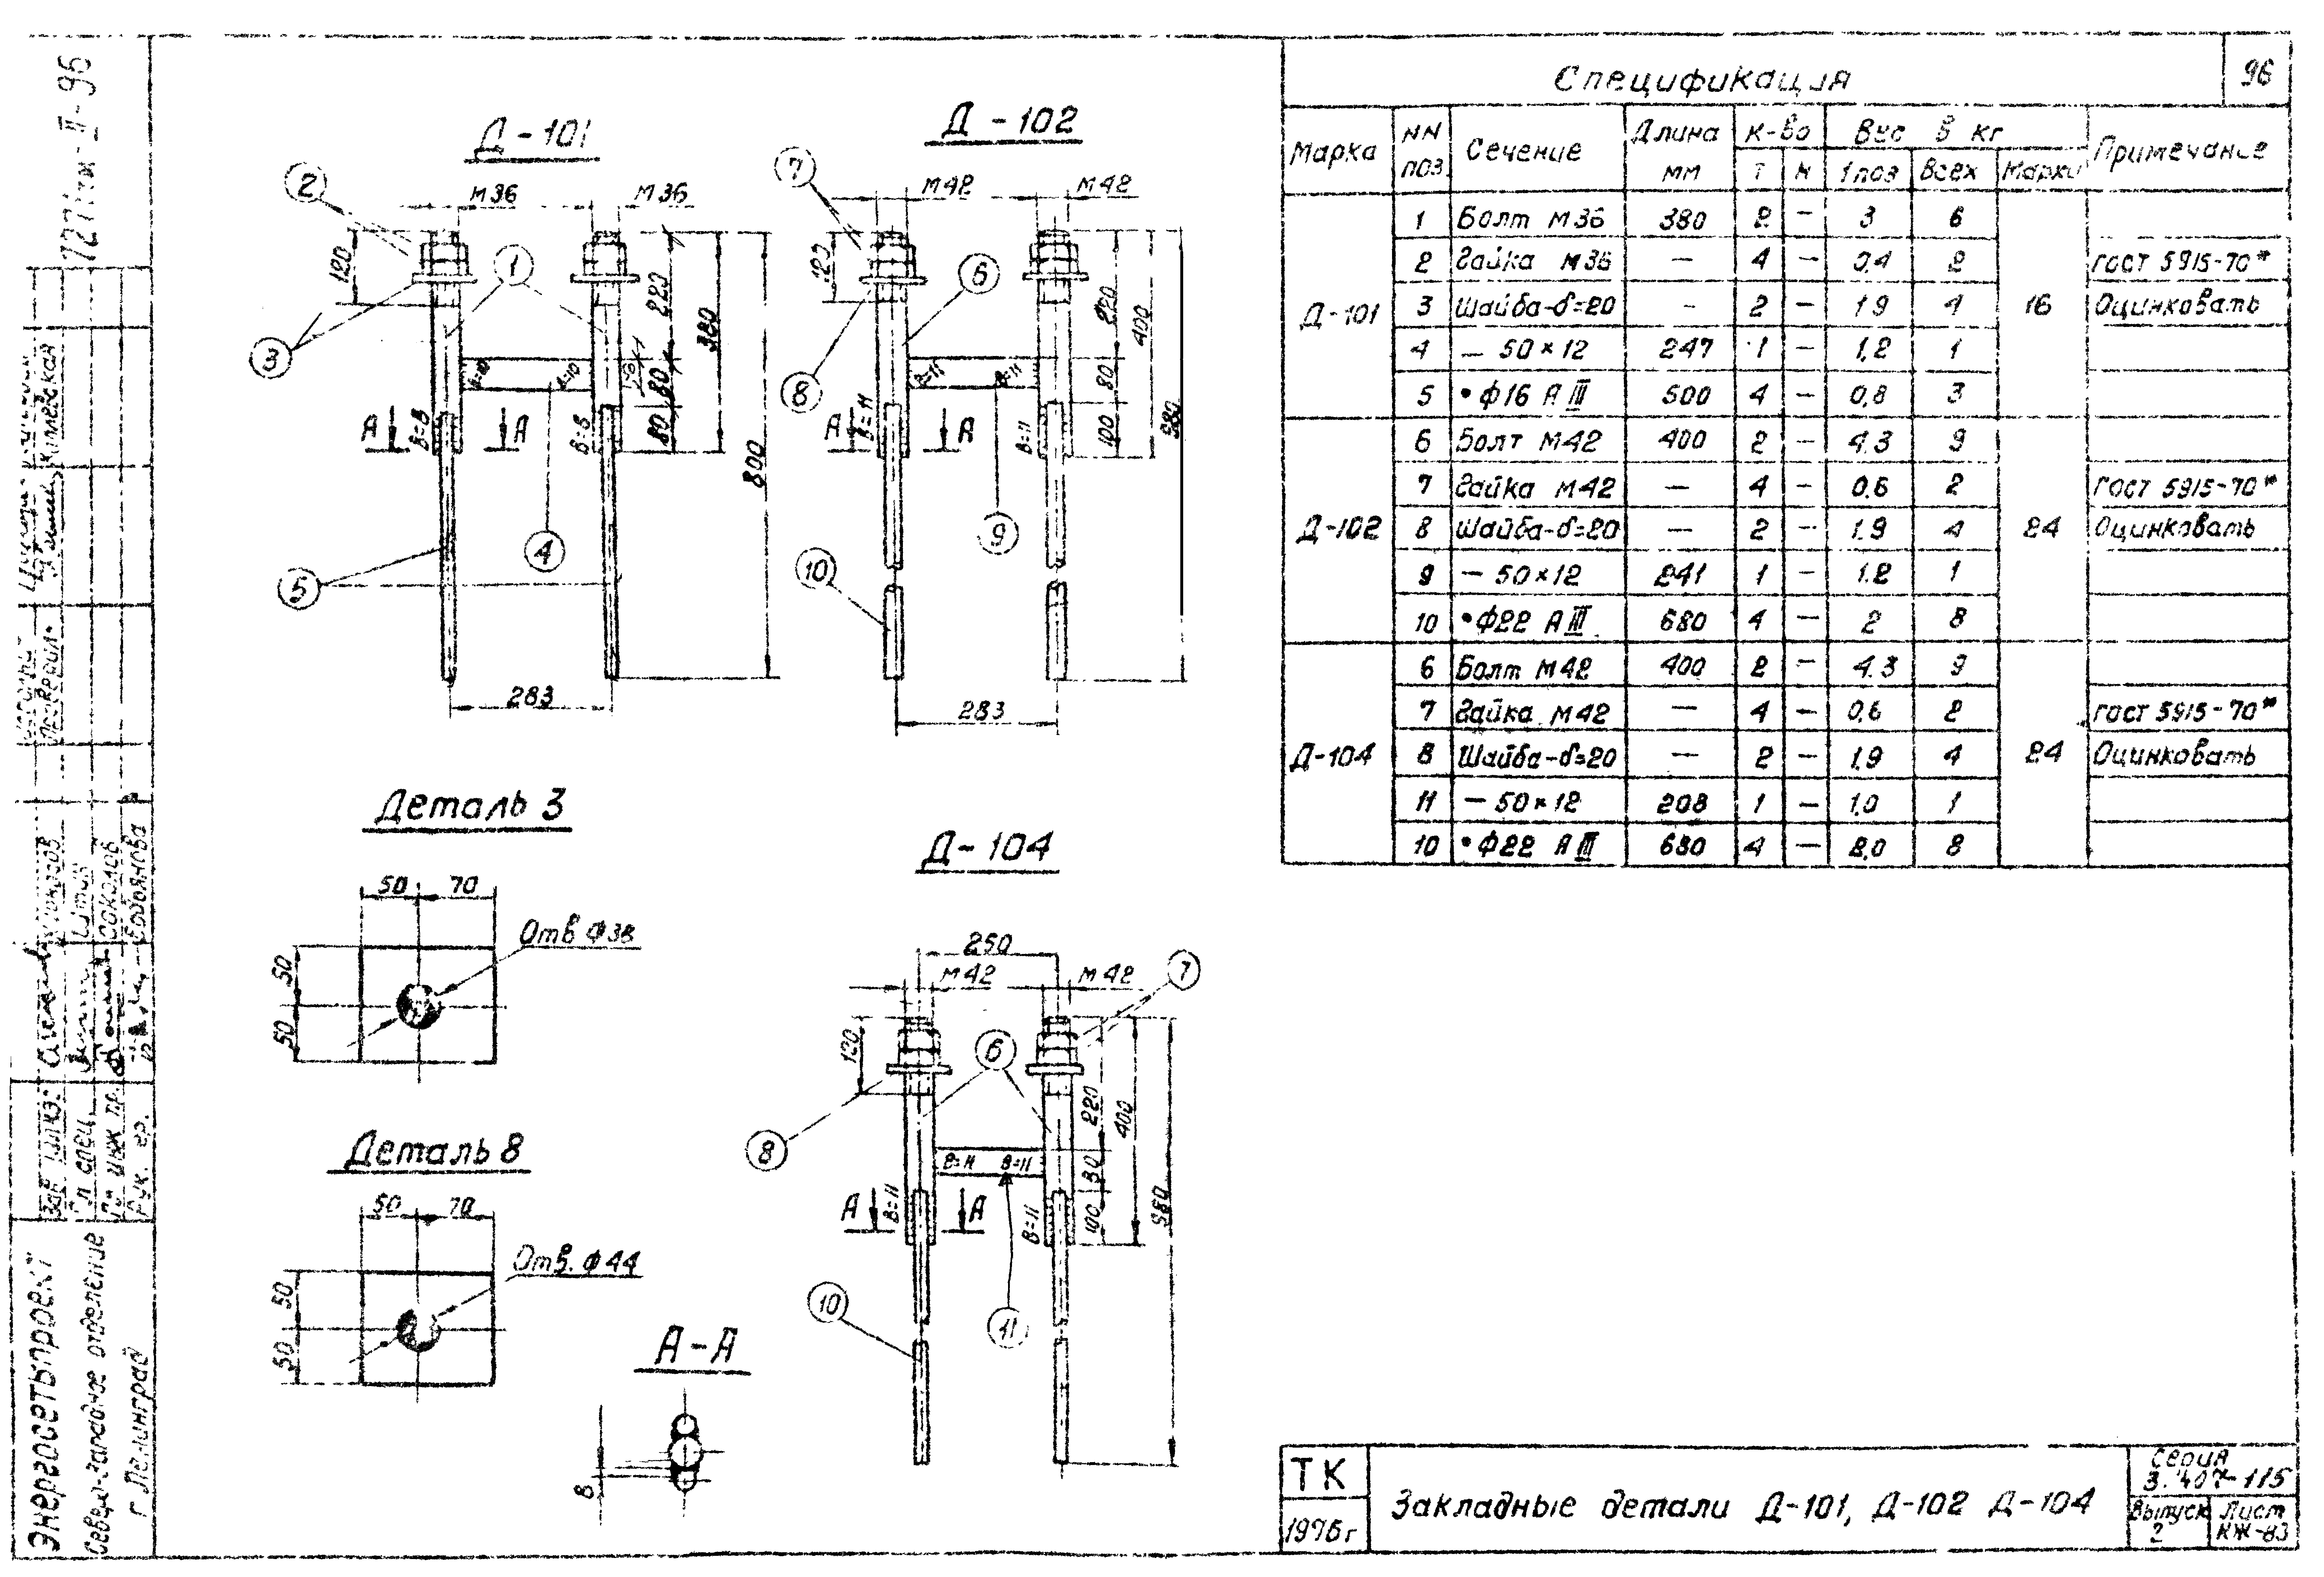 96
Спецификация
Марка NN поз Сечение Длина мм К-во Т Н Вес в кг 1 поз Всех Марки Примечание
Д-101
1 Болт М36 380 2 — 3 6
2 Гайка М36 — 4 — 0,4 2 ГОСТ 5915-70*
3 Шайба-δ=20 — 2 — 1.9 4 16 Оцинковать
4 — 50×12 247 1 — 1,2 1
5 • ф16 А III 500 4 — 0,8 3
Д-102
6 Болт М42 400 2 — 4.3 9
7 Гайка М42 — 4 — 0.6 2 ГОСТ 5915-70*
8 Шайба-δ=20 — 2 — 1.9 4 24 Оцинковать
9 — 50×12 241 1 — 1.2 1
10 • ф22 А III 680 4 — 2 8
Д-104
6 Болт М42 400 2 — 4.3 9
7 Гайка М42 — 4 — 0,6 2 ГОСТ 5915-70*
8 Шайба-δ=20 — 2 — 1.9 4 24 Оцинковать
11 — 50×12 208 1 — 1,0 1
10 • ф22 А III 680 4 — 2,0 8
Д-101
М36 М36
120 220 80 80 380 800
В=10 В=10
В=8 В=8
А А
283
1 2 3 4 5
Д-102
М42 М42
120 220 80 100 400 980
В=11 В=11
В=11 В=11
А А
283
6 7 8 9 10
Деталь 3
50 70
Отв Ф38
50
50
Деталь 8
50 70
Отв. Ф44
50
50
А-А
В
Д-104
250
М42 М42
120 220 80 100 400 980
В=11 В=11
В=11 В=11
А А
6 7 8 10 11
ТК
1976г
Закладные детали Д-101, Д-102 Д-104
Серия
3.407-115
Выпуск
2
Лист
КЖ-83
Энергосетьпроект
Северо-западное отделение
г Ленинград
Гл спец
Гл инж пр.
Рук. гр.
Соколов